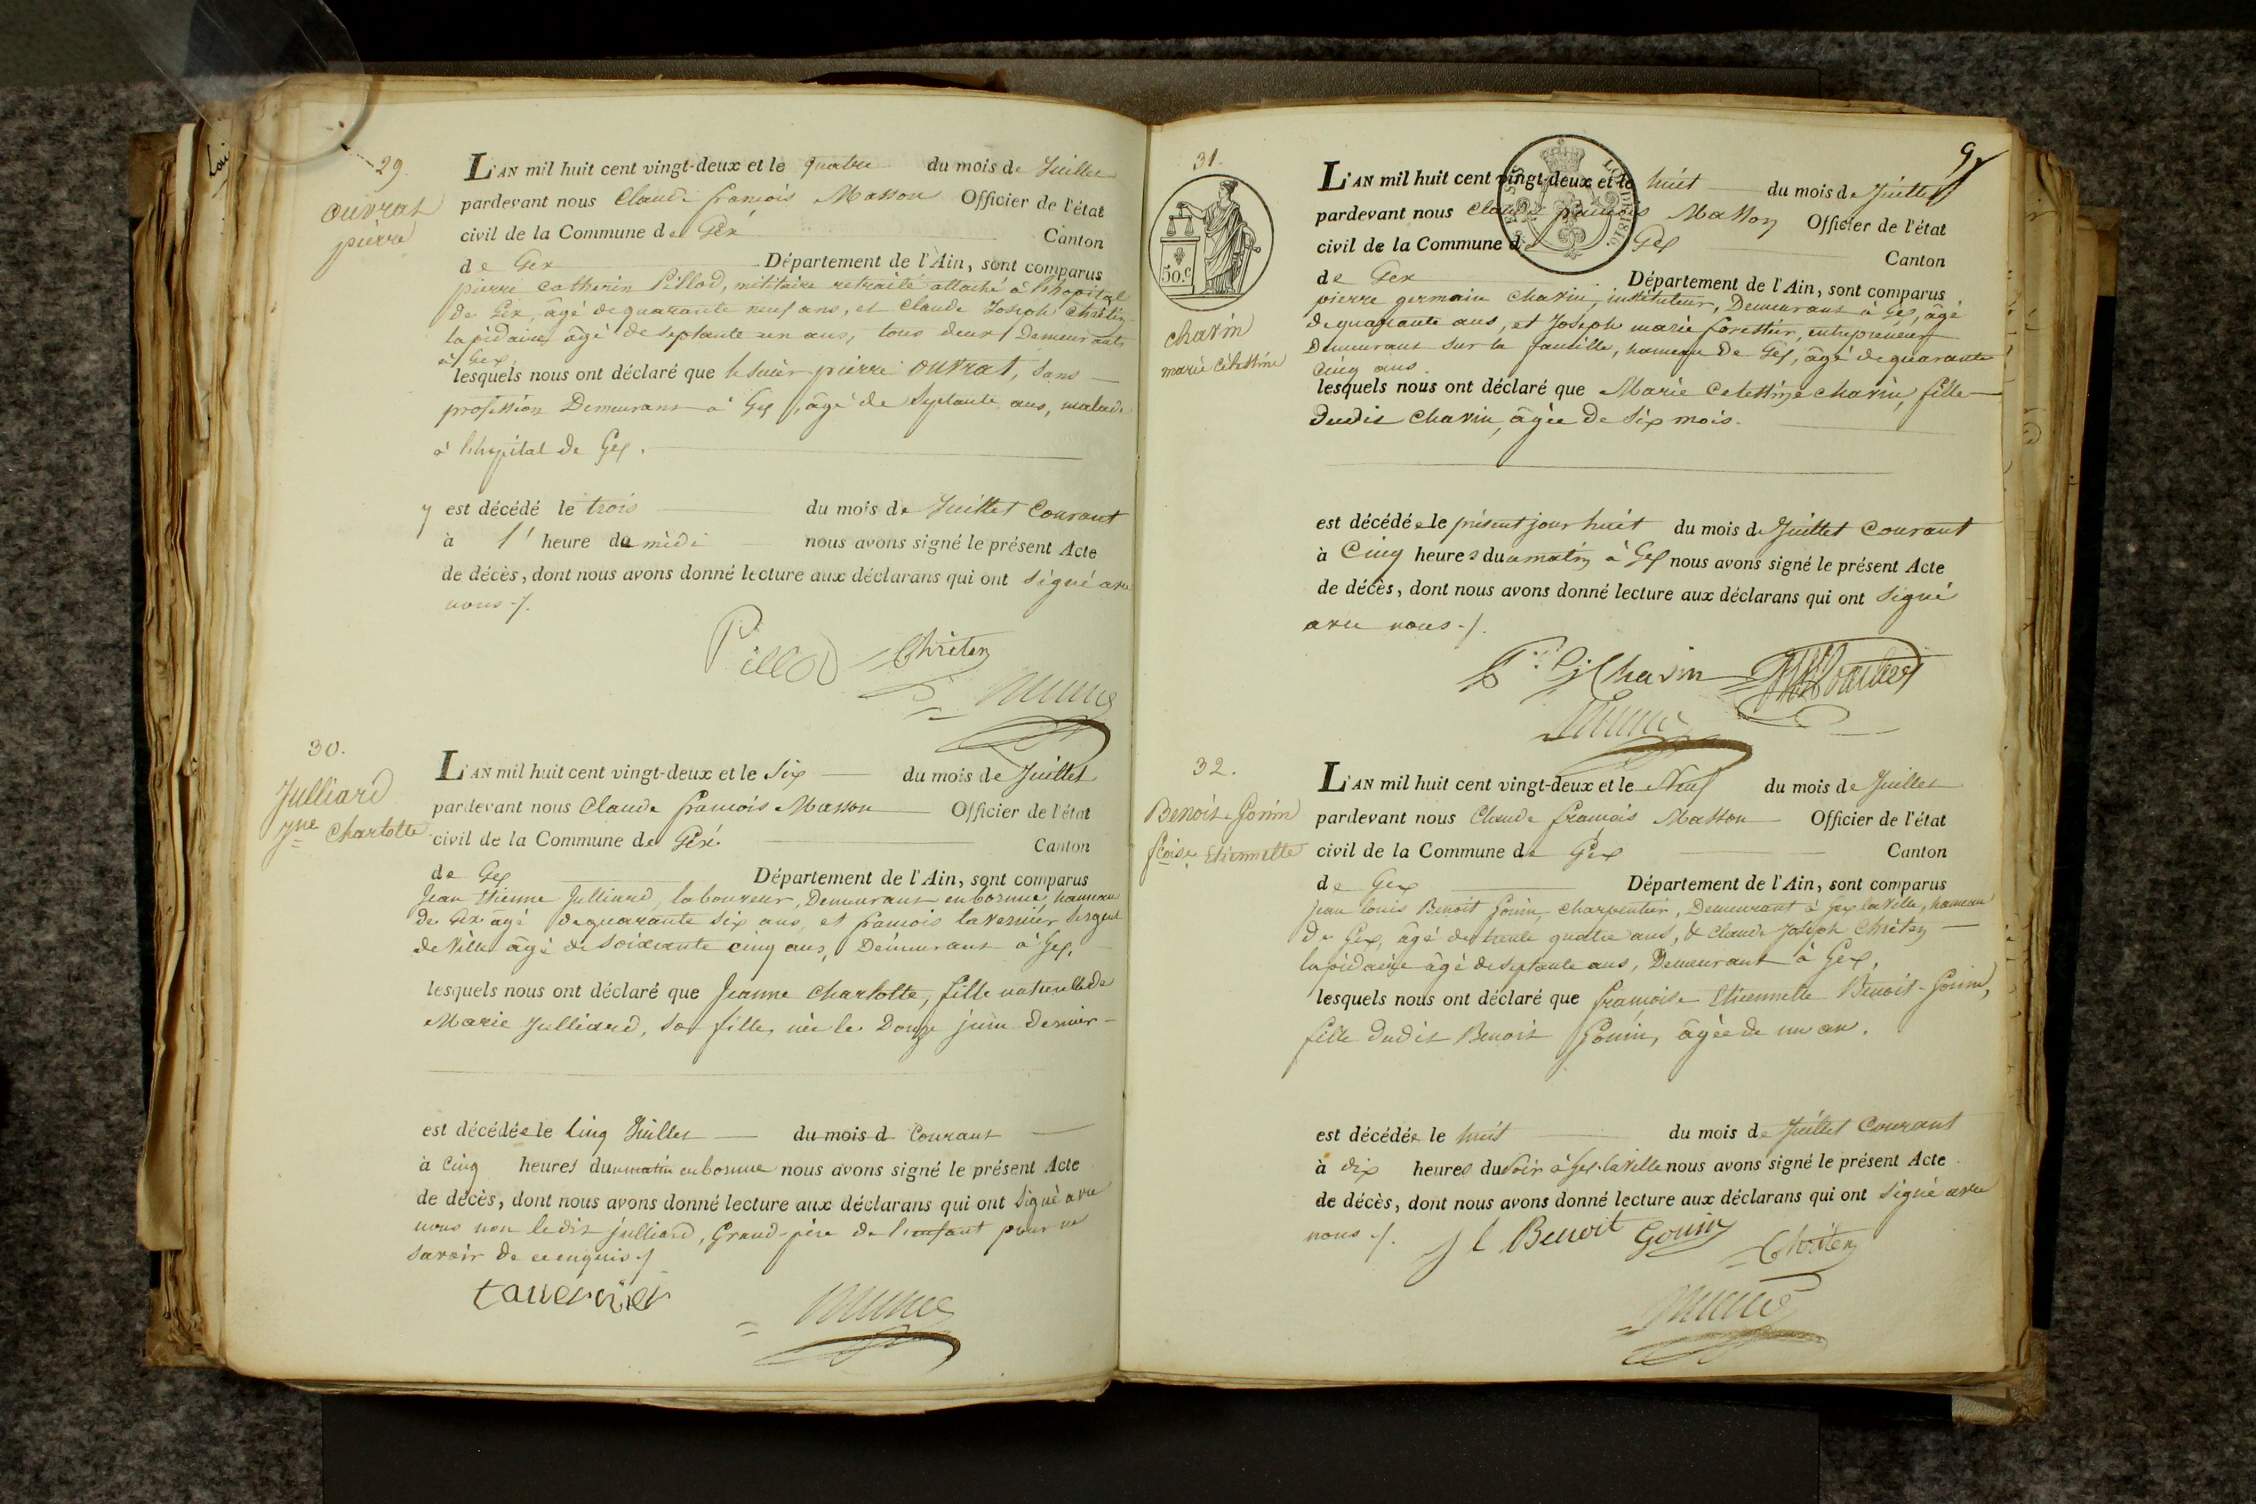 29.
ouvrat
pierre
L'AN mil huit cent vingt-deux et le quatre du mois de Juillet
pardevant nous Claude françois Masson Officier de l'état
civil de la Commune de Gex Canton
de Gex Département de l'Ain, sont comparus
pierre catherin Pillod, militaire retraité attaché à l'hopital
de Gex, âgé de quarante neuf ans, et Claude Joseph Chrêten
lapidaire, âgé de septante un ans, tous deux Demeurants
à Gex.
lesquels nous ont déclaré que le sieur pierre ouvrat, sans
profession Demeurant à Gex, âgé de Septante ans, malade
à l'hopital de Gex.
y est décédé le trois du mois de Juillet Courant
à 1' heure de midi nous avons signé le présent Acte
de décès, dont nous avons donné lecture aux déclarans qui ont signé avec
nous ./.
Pillod Chrêten
30.
Julliard
Jne Charlotte
L'AN mil huit cent vingt-deux et le Six du mois de Juillet
pardevant nous Claude françois Masson Officier de l'état
civil de la Commune de Gex Canton
de Gex Département de l'Ain, sont comparus
Jean Etienne Julliard, laboureur, Demeurant en bornue, hameau
de Gex âgé de quarante six ans, et françois tavernier sergent
de Ville âgé de soixante cinq ans, Demeurant à Gex.
lesquels nous ont déclaré que Jeanne Charlotte, fille naturelle de
Marie Julliard, sa fille, née le Douze juin dernier
est décédée le Cinq Juillet du mois d Courant
à Cinq heures du matin en bornue nous avons signé le présent Acte
de décès, dont nous avons donné lecture aux déclarans qui ont Signé avec
nous non ledit julliard, Grand-père de l'enfant pour ne
savoir de ce enquis ./.
tavernier
9
31.
50.c
chavin
marie céléstine
L'AN mil huit cent vingt-deux et le huit du mois de Juillet
pardevant nous Claude françois Masson Officier de l'état
civil de la Commune de Gex Canton
de Gex Département de l'Ain, sont comparus
pierre germain chavin, instituteur, Demeurant à Gex, âgé
de quarante ans, et Joseph marie forestier, entrepreneur
Demeurant sur la faucille, hameau de Gex, âgé de quarante
cinq ans.
lesquels nous ont déclaré que Marie Celestine chavin, fille
dudit Chavin, âgée de Six mois.
est décédée le présent jour huit du mois de Juillet Courant
à Cinq heures du matin à Gex nous avons signé le présent Acte
de décès, dont nous avons donné lecture aux déclarans qui ont signé
avec nous ./.
Chavin
32.
Benoit-Gonin
fcoise Etiennette
L'AN mil huit cent vingt-deux et le Neuf du mois de Juillet
pardevant nous Claude françois Masson Officier de l'état
civil de la Commune de Gex Canton
de Gex Département de l'Ain, sont comparus
Jean louis Benoit Gonin, charpentier, Demeurant à Gex la Ville, hameau
de Gex, âgé de trente quatre ans, & Claude Joseph Chrêten
lapidaire âgé de septante ans, Demeurant à Gex.
lesquels nous ont déclaré que françoise Etiennette Benoit-Gonin,
fille dudit Benoit Gonin, âgée de un an.
est décédée le huit du mois de Juillet Courant
à dix heures du soir à Gex-la Ville nous avons signé le présent Acte
de décès, dont nous avons donné lecture aux déclarans qui ont signé avec
nous ./.
J l Benoit Gonin Chrêten